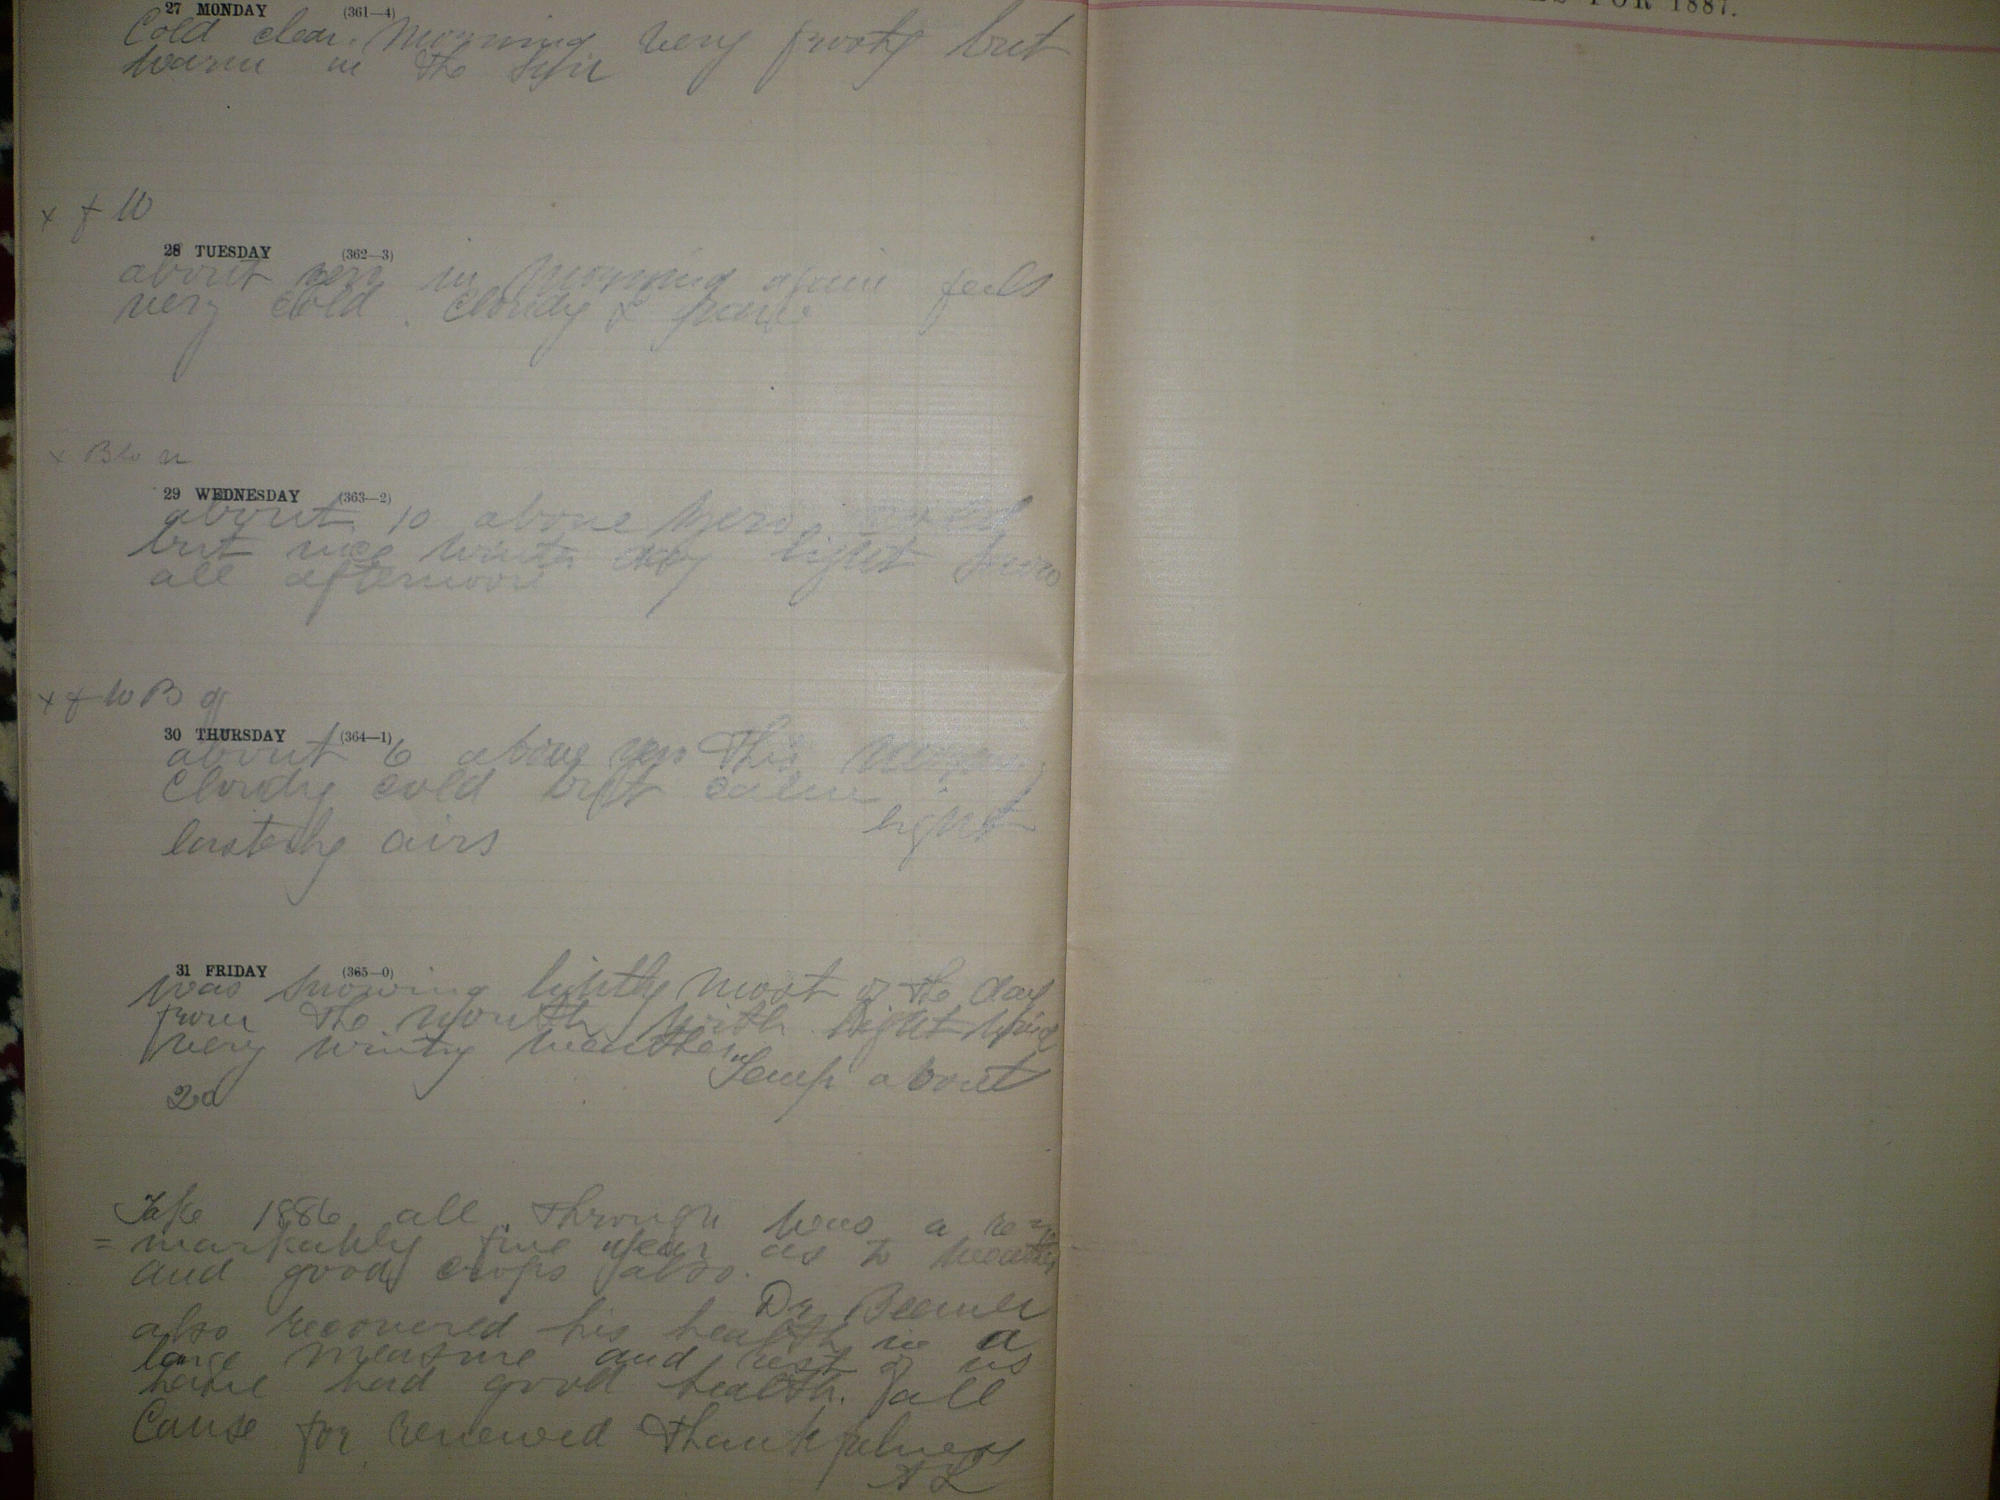 27 MONDAY (361—4)
Cold clear. Morning very frosty but
warm in the sun
x f W
28 TUESDAY (362—3)
about zero in morning again feels
very cold. Cloudy &
x B
29 WEDNESDAY (363—2)
about 10 above zero,
but nice winter day light snow
all afternoon
x f W B
30 THURSDAY (364—1)
about 6 above zero this morning
Cloudy cold but calm
light
easterly airs
31 FRIDAY (365—0)
was snowing lightly most of the day
from the north with light wind
very wintry weather
Temp about
20
Take 1886 all through was a re=
=markably fine year as to weather
and good crops also.
Dr
also recovered his health in a
large measure and rest of us
have had good health. all
Cause for renewed Thankfulness
A L
FOR 1887.